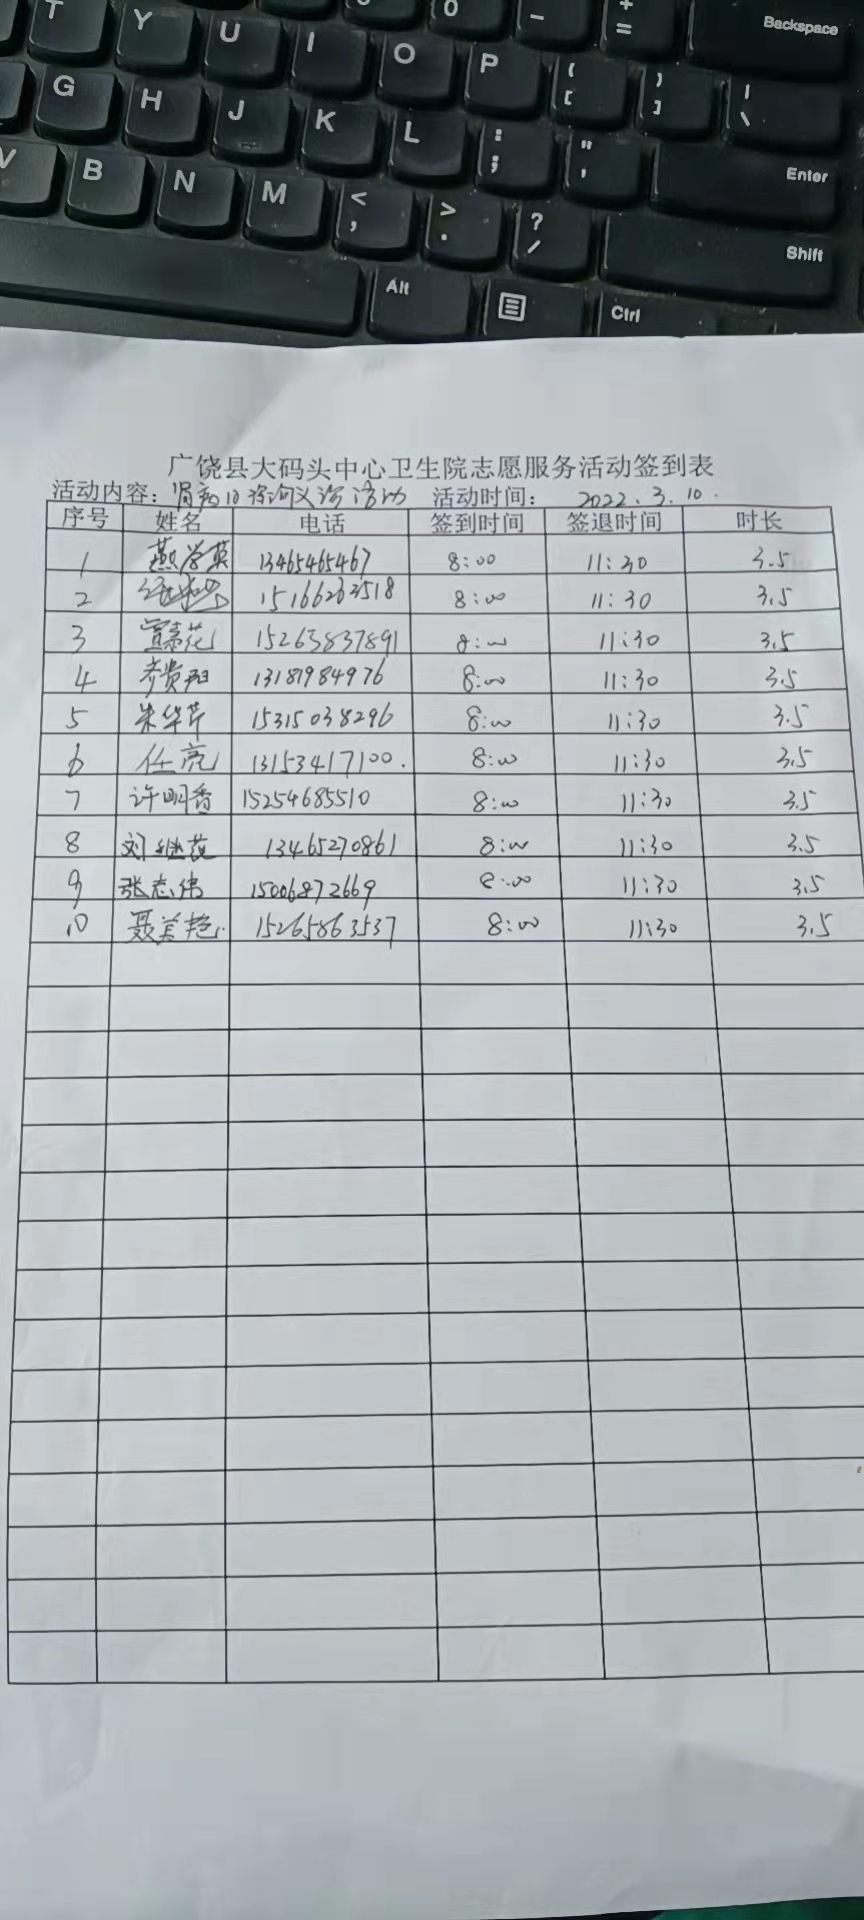 T Y U I O P { [ } ] | \ Backspace
0 - + =
G H J K L : ; " ' Enter
V B N M < , > . ? / Shift
Alt Ctrl
广饶县大码头中心卫生院志愿服务活动签到表
活动内容：肾病日咨询义诊活动 活动时间： 2022.3.10.
序号 姓名 电话 签到时间 签退时间 时长
1 燕学英 13465465467 8:00 11:30 3.5
2 15166262518 8:00 11:30 3.5
3 15263837891 8:00 11:30 3.5
4 13181984976 8:00 11:30 3.5
5 朱华芹 15315038296 8:00 11:30 3.5
6 任亮 13153417100. 8:00 11:30 3.5
7 许明香 15254685510 8:00 11:30 3.5
8 刘继花 13465270861 8:00 11:30 3.5
9 张志伟 15006872669 8:00 11:30 3.5
10 聂美艳. 15265863537 8:00 11:30 3.5